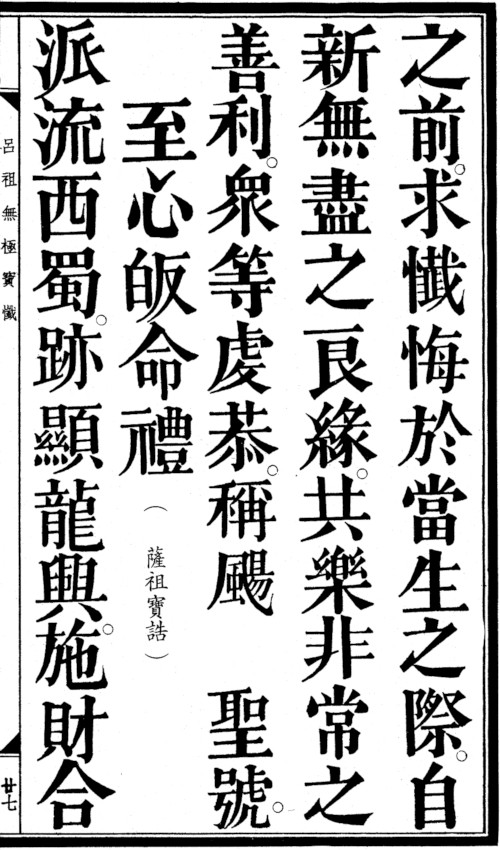 之前。求懺悔於當生之際。自
新無盡之良緣。共樂非常之
善利。衆等虔恭。稱颺　聖號。
至心皈命禮
（薩祖寶誥）
派流西蜀。跡顯龍興。施財合
呂祖無極寶懺
廿七